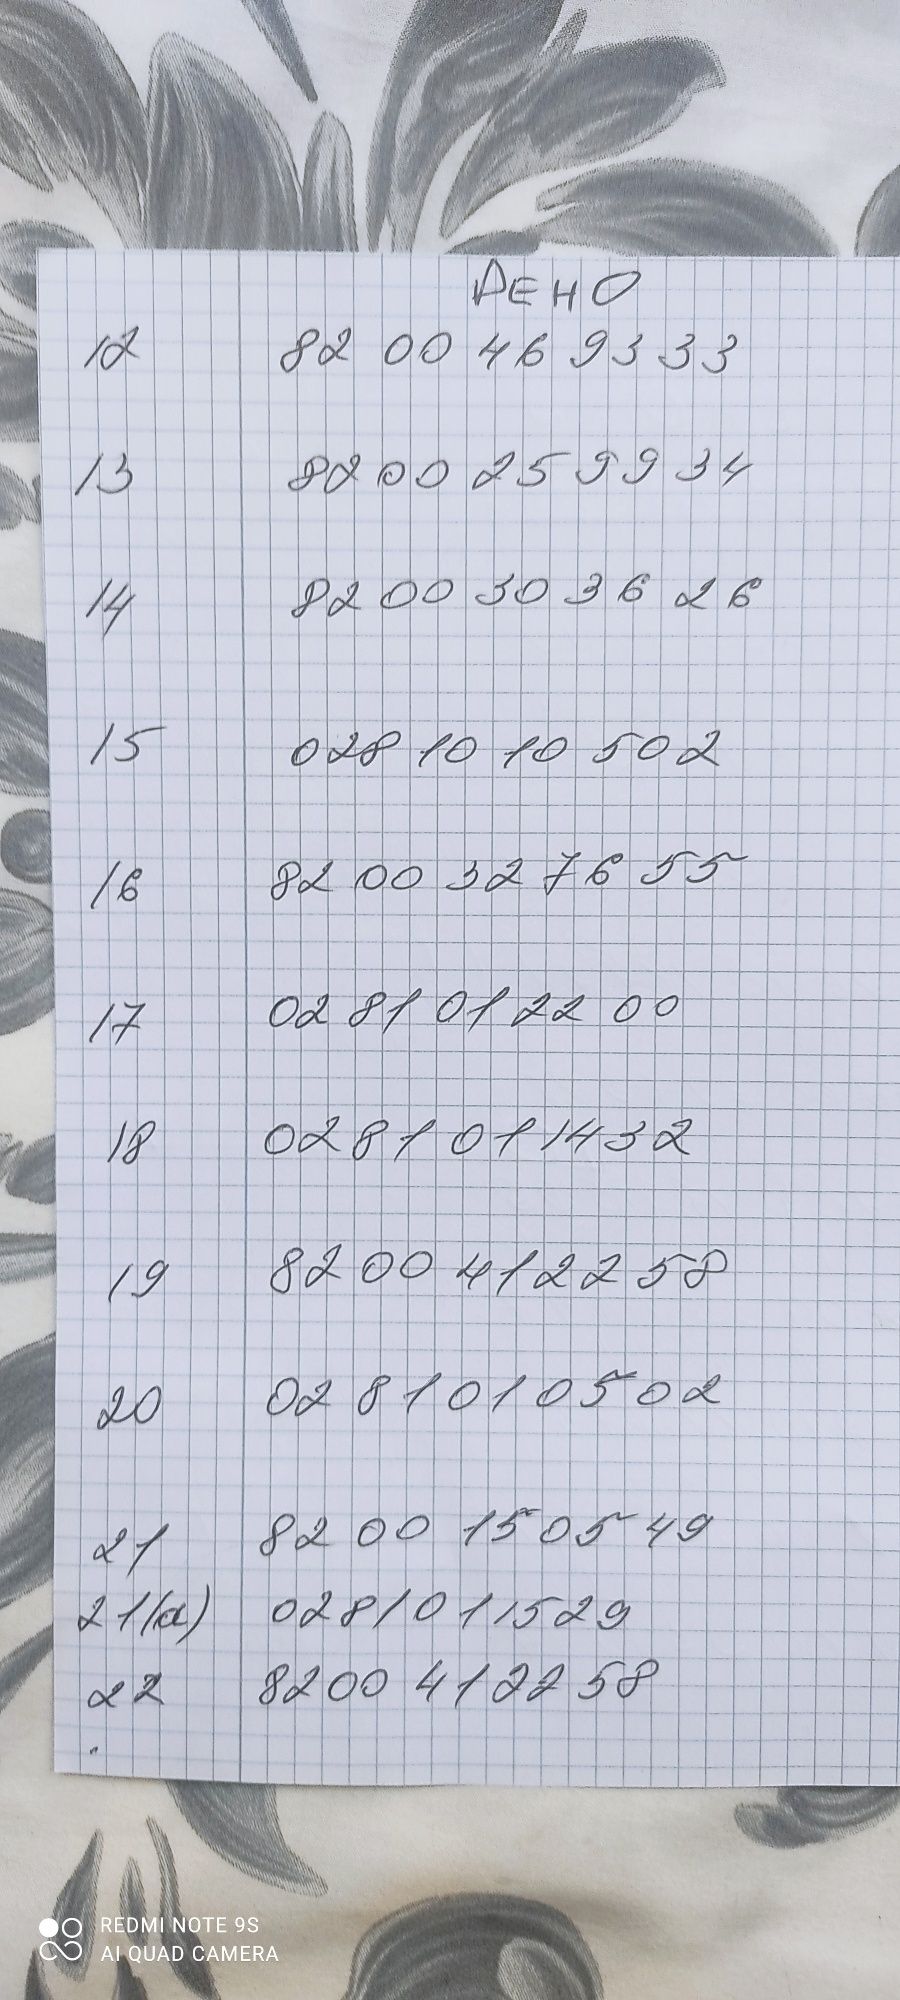 РЕНО
12 82 00 46 93 33
13 82 00 25 99 34
14 82 00 30 36 26
15 028 10 10 502
16 82 00 32 76 55
17 02 81 01 22 00
18 02 81 01 14 32
19 82 00 41 22 58
20 02 81 01 05 02
21 82 00 15 05 49
21(а) 0281011529
22 8200 412258
REDMI NOTE 9S
AI QUAD CAMERA